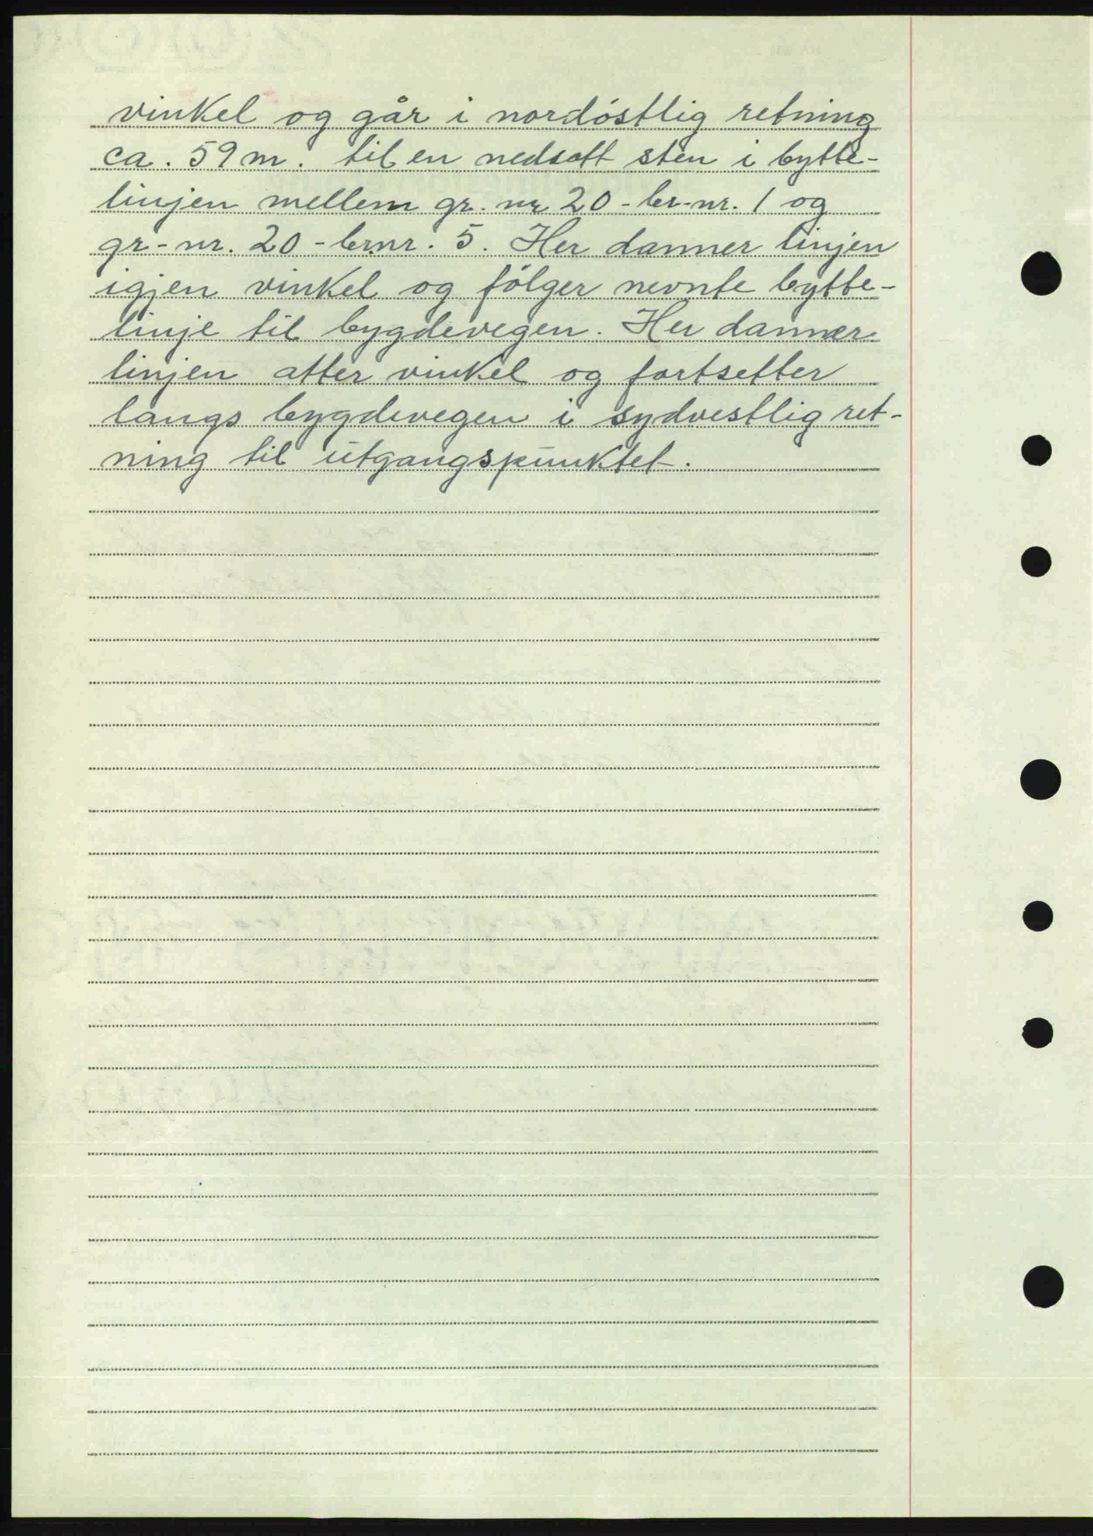 vinkel og går i nordöstlig retning
ca. 59 m. til en nedsatt sten i bytte-
linjen mellem gr. nr. 20 - br.-nr. 1 og
gr.-nr. 20 - br.nr. 5. Her danner linjen
igjen vinkel og fölger nevnte bytte-
linje til bygdevegen. Her danner
linjen atter vinkel og fortsetter
langs bygdevegen i sydvestlig ret-
ning til utgangspunktet.